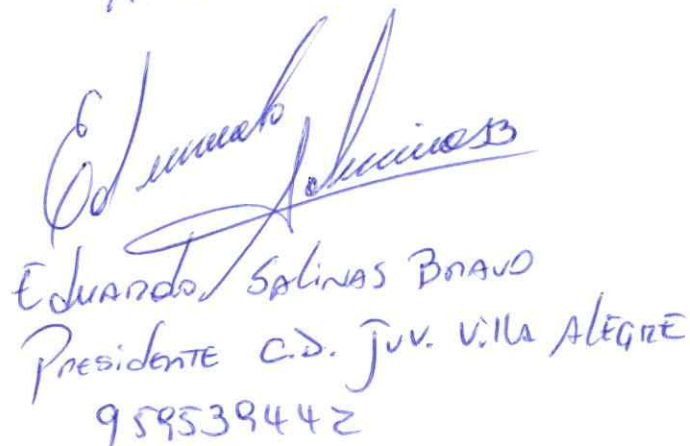 Eduardo Salinas B
Eduardo Salinas Bravo
Presidente C.D. Juv. Villa Alegre
959539442